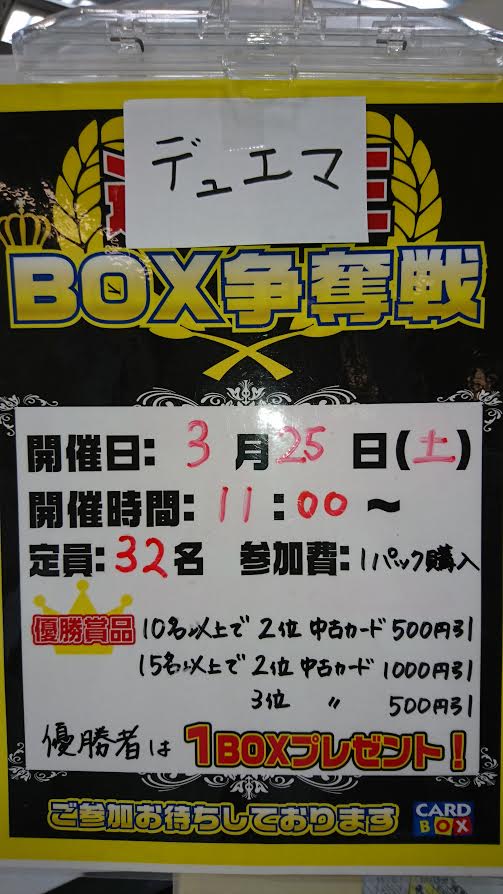 デュエマ
BOX争奪戦
開催日: 3月25日(土)
開催時間: 11:00~
定員: 32名 参加費: 1パック購入
優勝賞品 10名以上で 2位 中古カード 500円引
15名以上で 2位 中古カード 1000円引
3位 〃 500円引
優勝者は 1BOXプレゼント!
ご参加お待ちしております CARD BOX